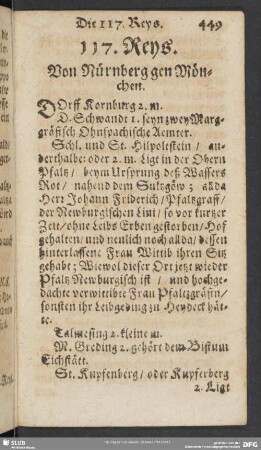 Die 117. Reys. 449
117. Reys.
Von Nürnberg gen Mön-
chen.
DOrff Kornburg 2. m.
D. Schwandt 1. seyn zwey Marg-
gräfisch Ohnspachische Aemter.
Schl. und St. Hilpoltstein / an-
derthalbe: oder 2. m. Ligt in der Obern
Pfaltz / beym Ursprung deß Wassers
Rot / nahend dem Sultzgöw; allda
Herr Johann Friderich / Pfaltzgraff /
der Newburgischen Lini / so vor kurtzer
Zeit / ohne Leibs Erben gestorben / Hof
gehalten / und neulich noch allda / dessen
hinterlassene Frau Wittib ihren Sitz
gehabt; Wiewol dieser Ort jetzt wieder
Pfaltz Newburgisch ist / und hochge-
dachte verwittibte Frau Pfaltzgräfin /
sonsten ihr Leibgeding zu Heydeck hät-
te.
Talmesing 2. kleine m.
M. Greding 2. gehört dem Bistum
Eichstätt.
St. Kupfenberg / oder Kupferberg
2. Ligt
SLUB
DFG